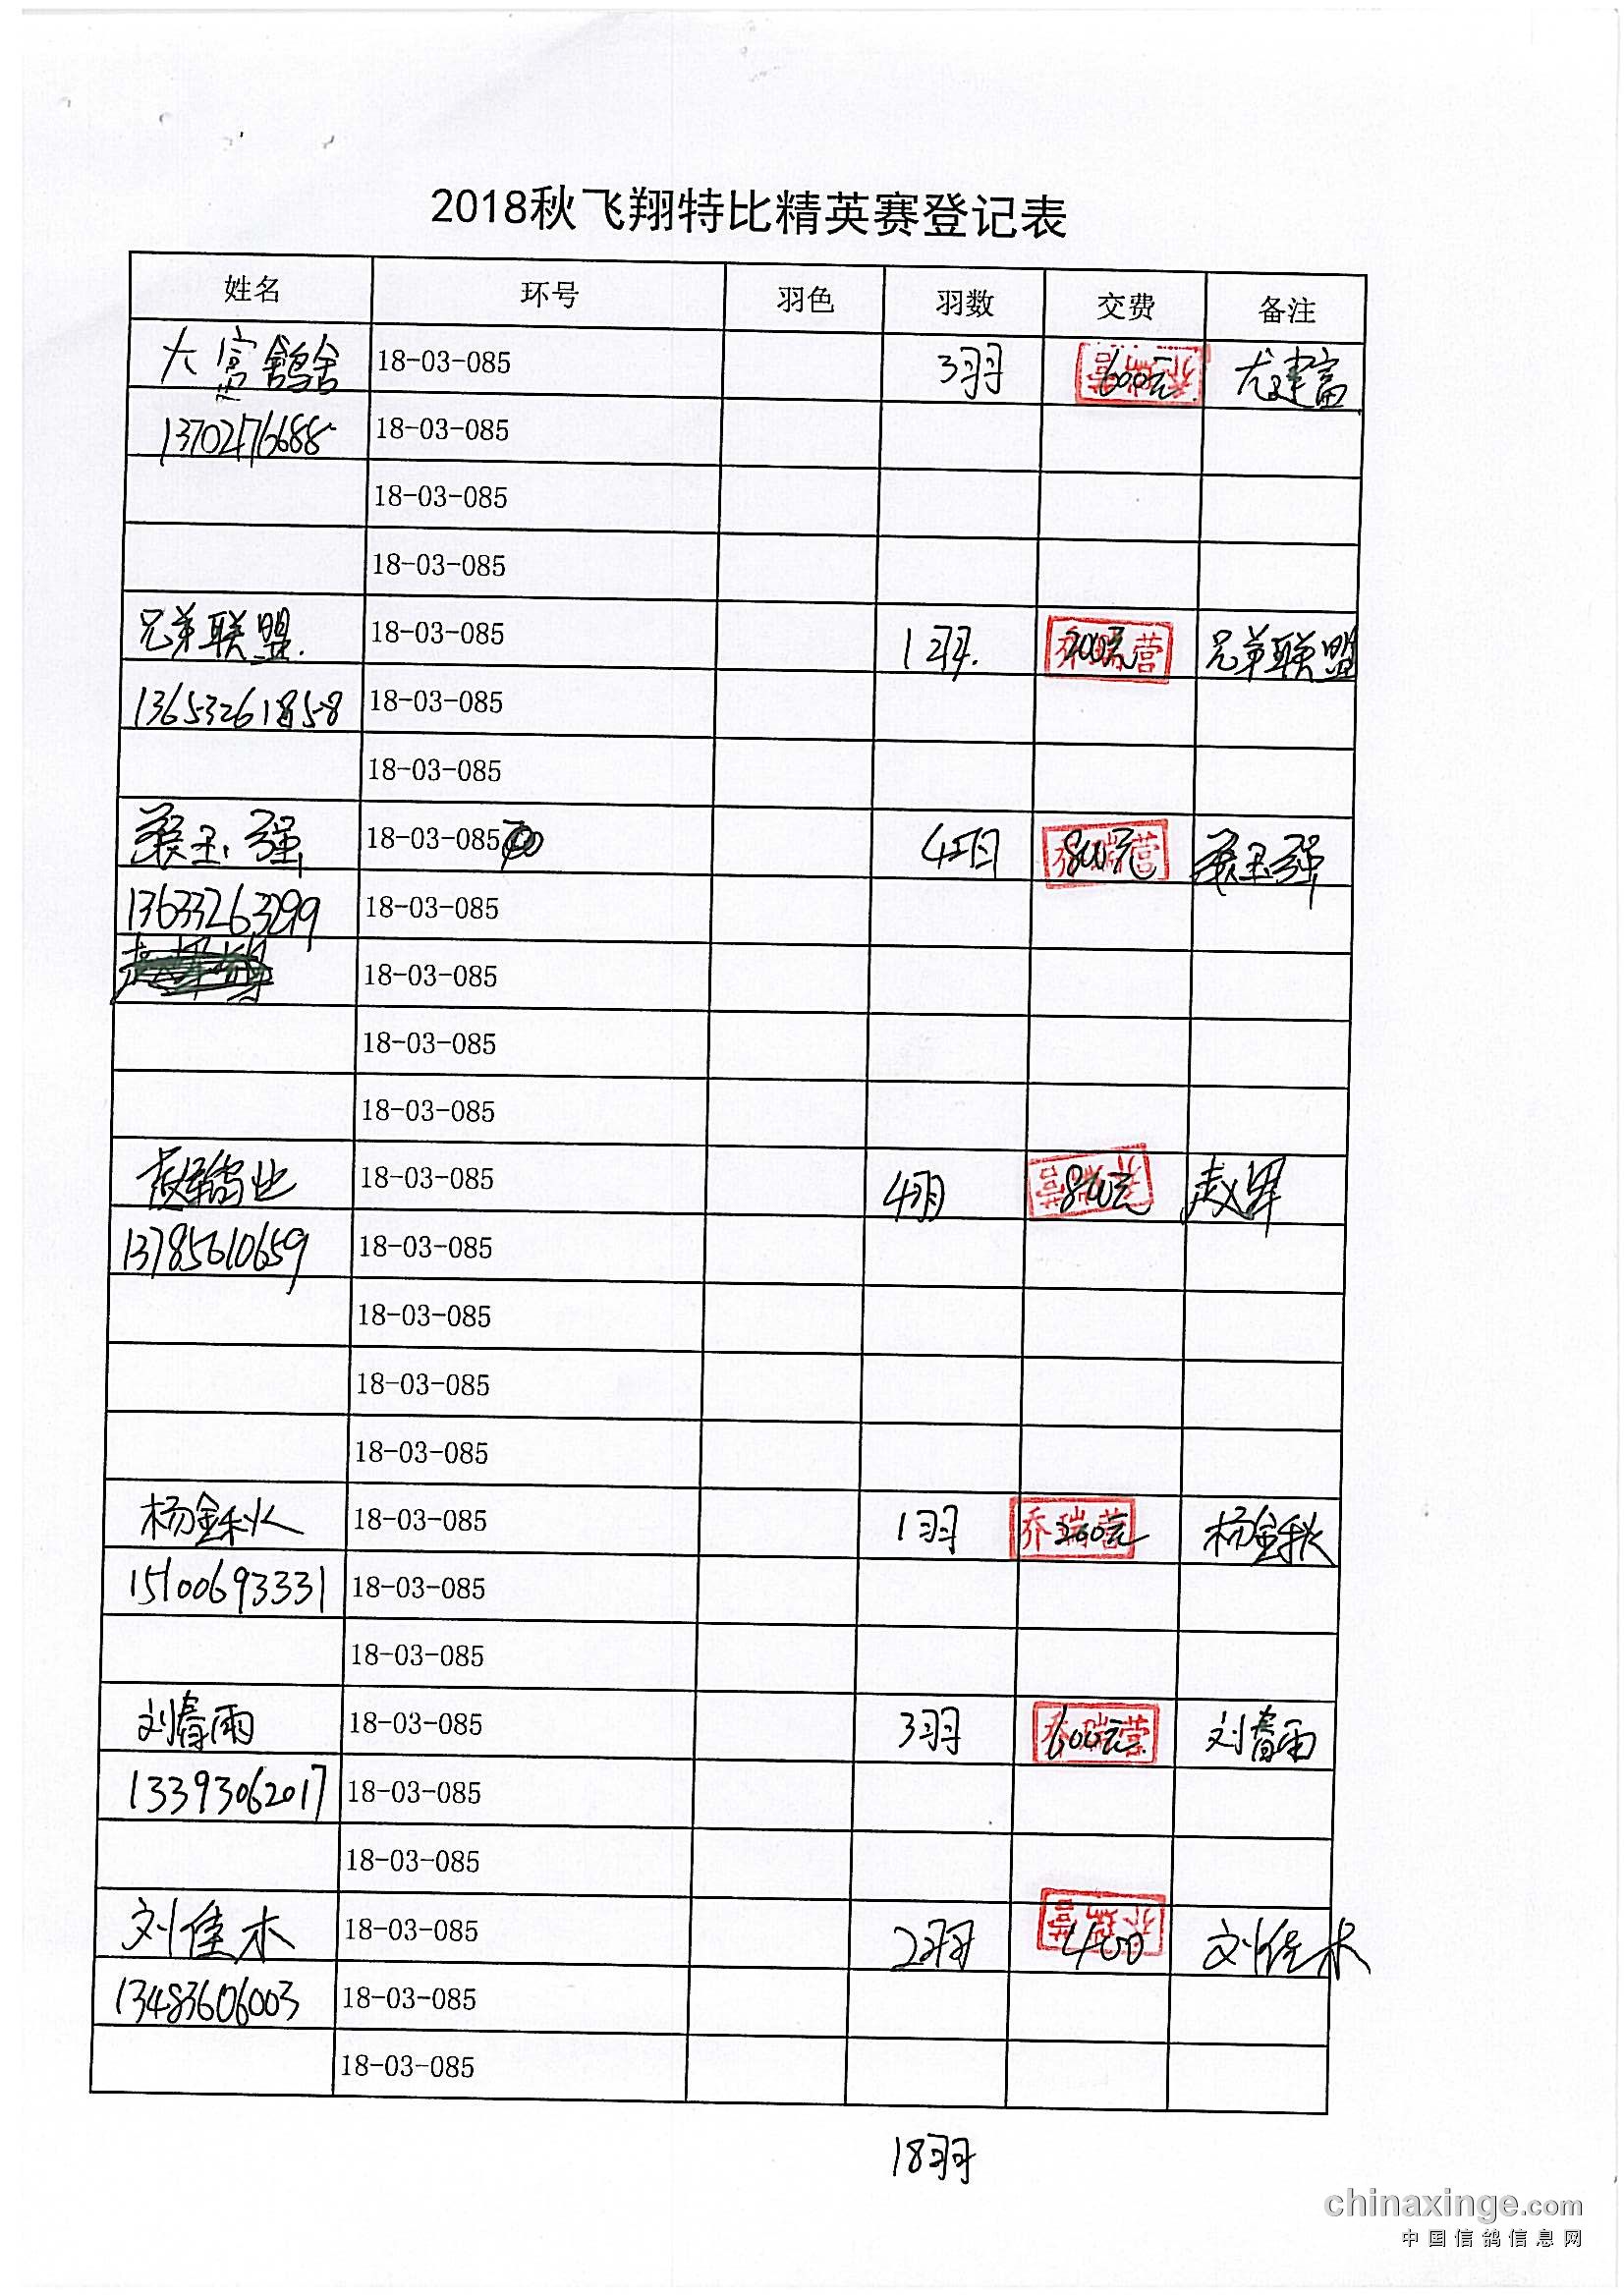 2018秋飞翔特比精英赛登记表
姓名 环号 羽色 羽数 交费 备注
大富鸽舍 18-03-085 3羽 600元 尤建富
13702476688 18-03-085
18-03-085
18-03-085
兄弟联盟. 18-03-085 1羽. 200元 兄弟联盟
13653261858 18-03-085
18-03-085
张玉强 18-03-085 4羽 800元 张玉强
13633263299 18-03-085
18-03-085
18-03-085
18-03-085
鸽业 18-03-085 4羽 800元 赵军
13785610659 18-03-085
18-03-085
18-03-085
18-03-085
杨金秋 18-03-085 1羽 乔瑞营 200元 杨金秋
15100693331 18-03-085
18-03-085
刘春雨 18-03-085 3羽 乔瑞营 600元 刘春雨
13393062017 18-03-085
18-03-085
刘佳木 18-03-085 2羽 400 刘佳木
13483606003 18-03-085
18-03-085
18羽
chinaxinge.com
中国信鸽信息网